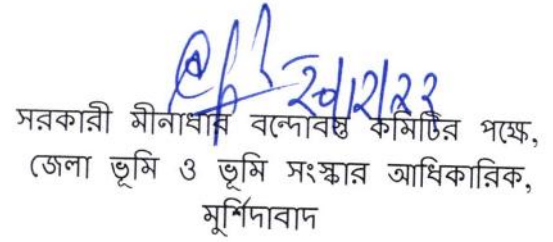 সরকারী মীনাধার বন্দোবস্ত কমিটির পক্ষে,
জেলা ভূমি ও ভূমি সংস্কার আধিকারিক,
মুর্শিদাবাদ